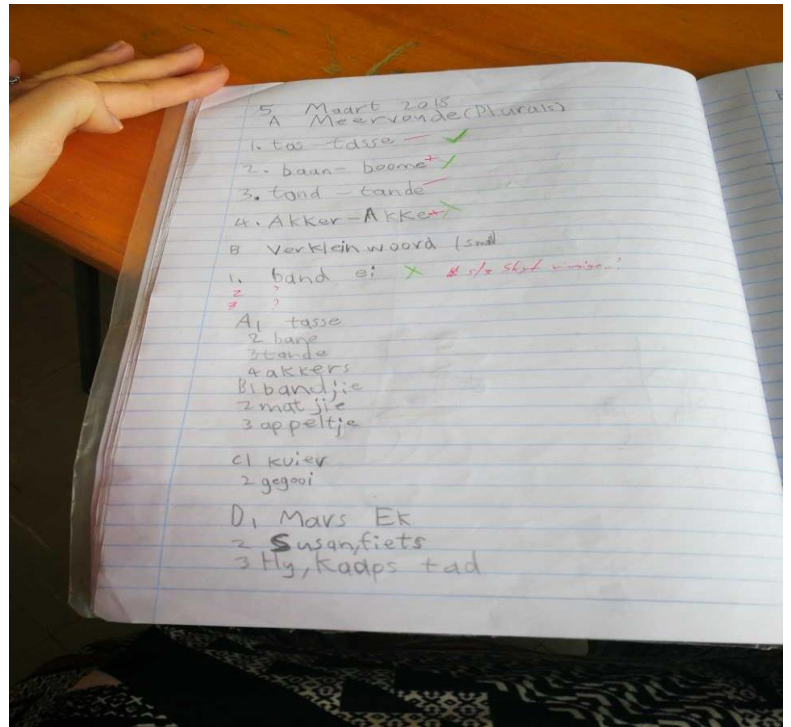 5 Maart 2018
A Meervoude (Plurals)
1. tas - tasse
2. baan - boome
3. tand - tande
4. Akker - Akke
B Verkleinwoord (small
1. band ei
2 ?
3 ?
A1 tasse
2 bane
3 tande
4 akkers
B1 bandjie
2 matjie
3 appeltje
C1 kuier
2 gegooi
D1 Mars Ek
2 Susan, fiets
3 Hy, Kaaps tad